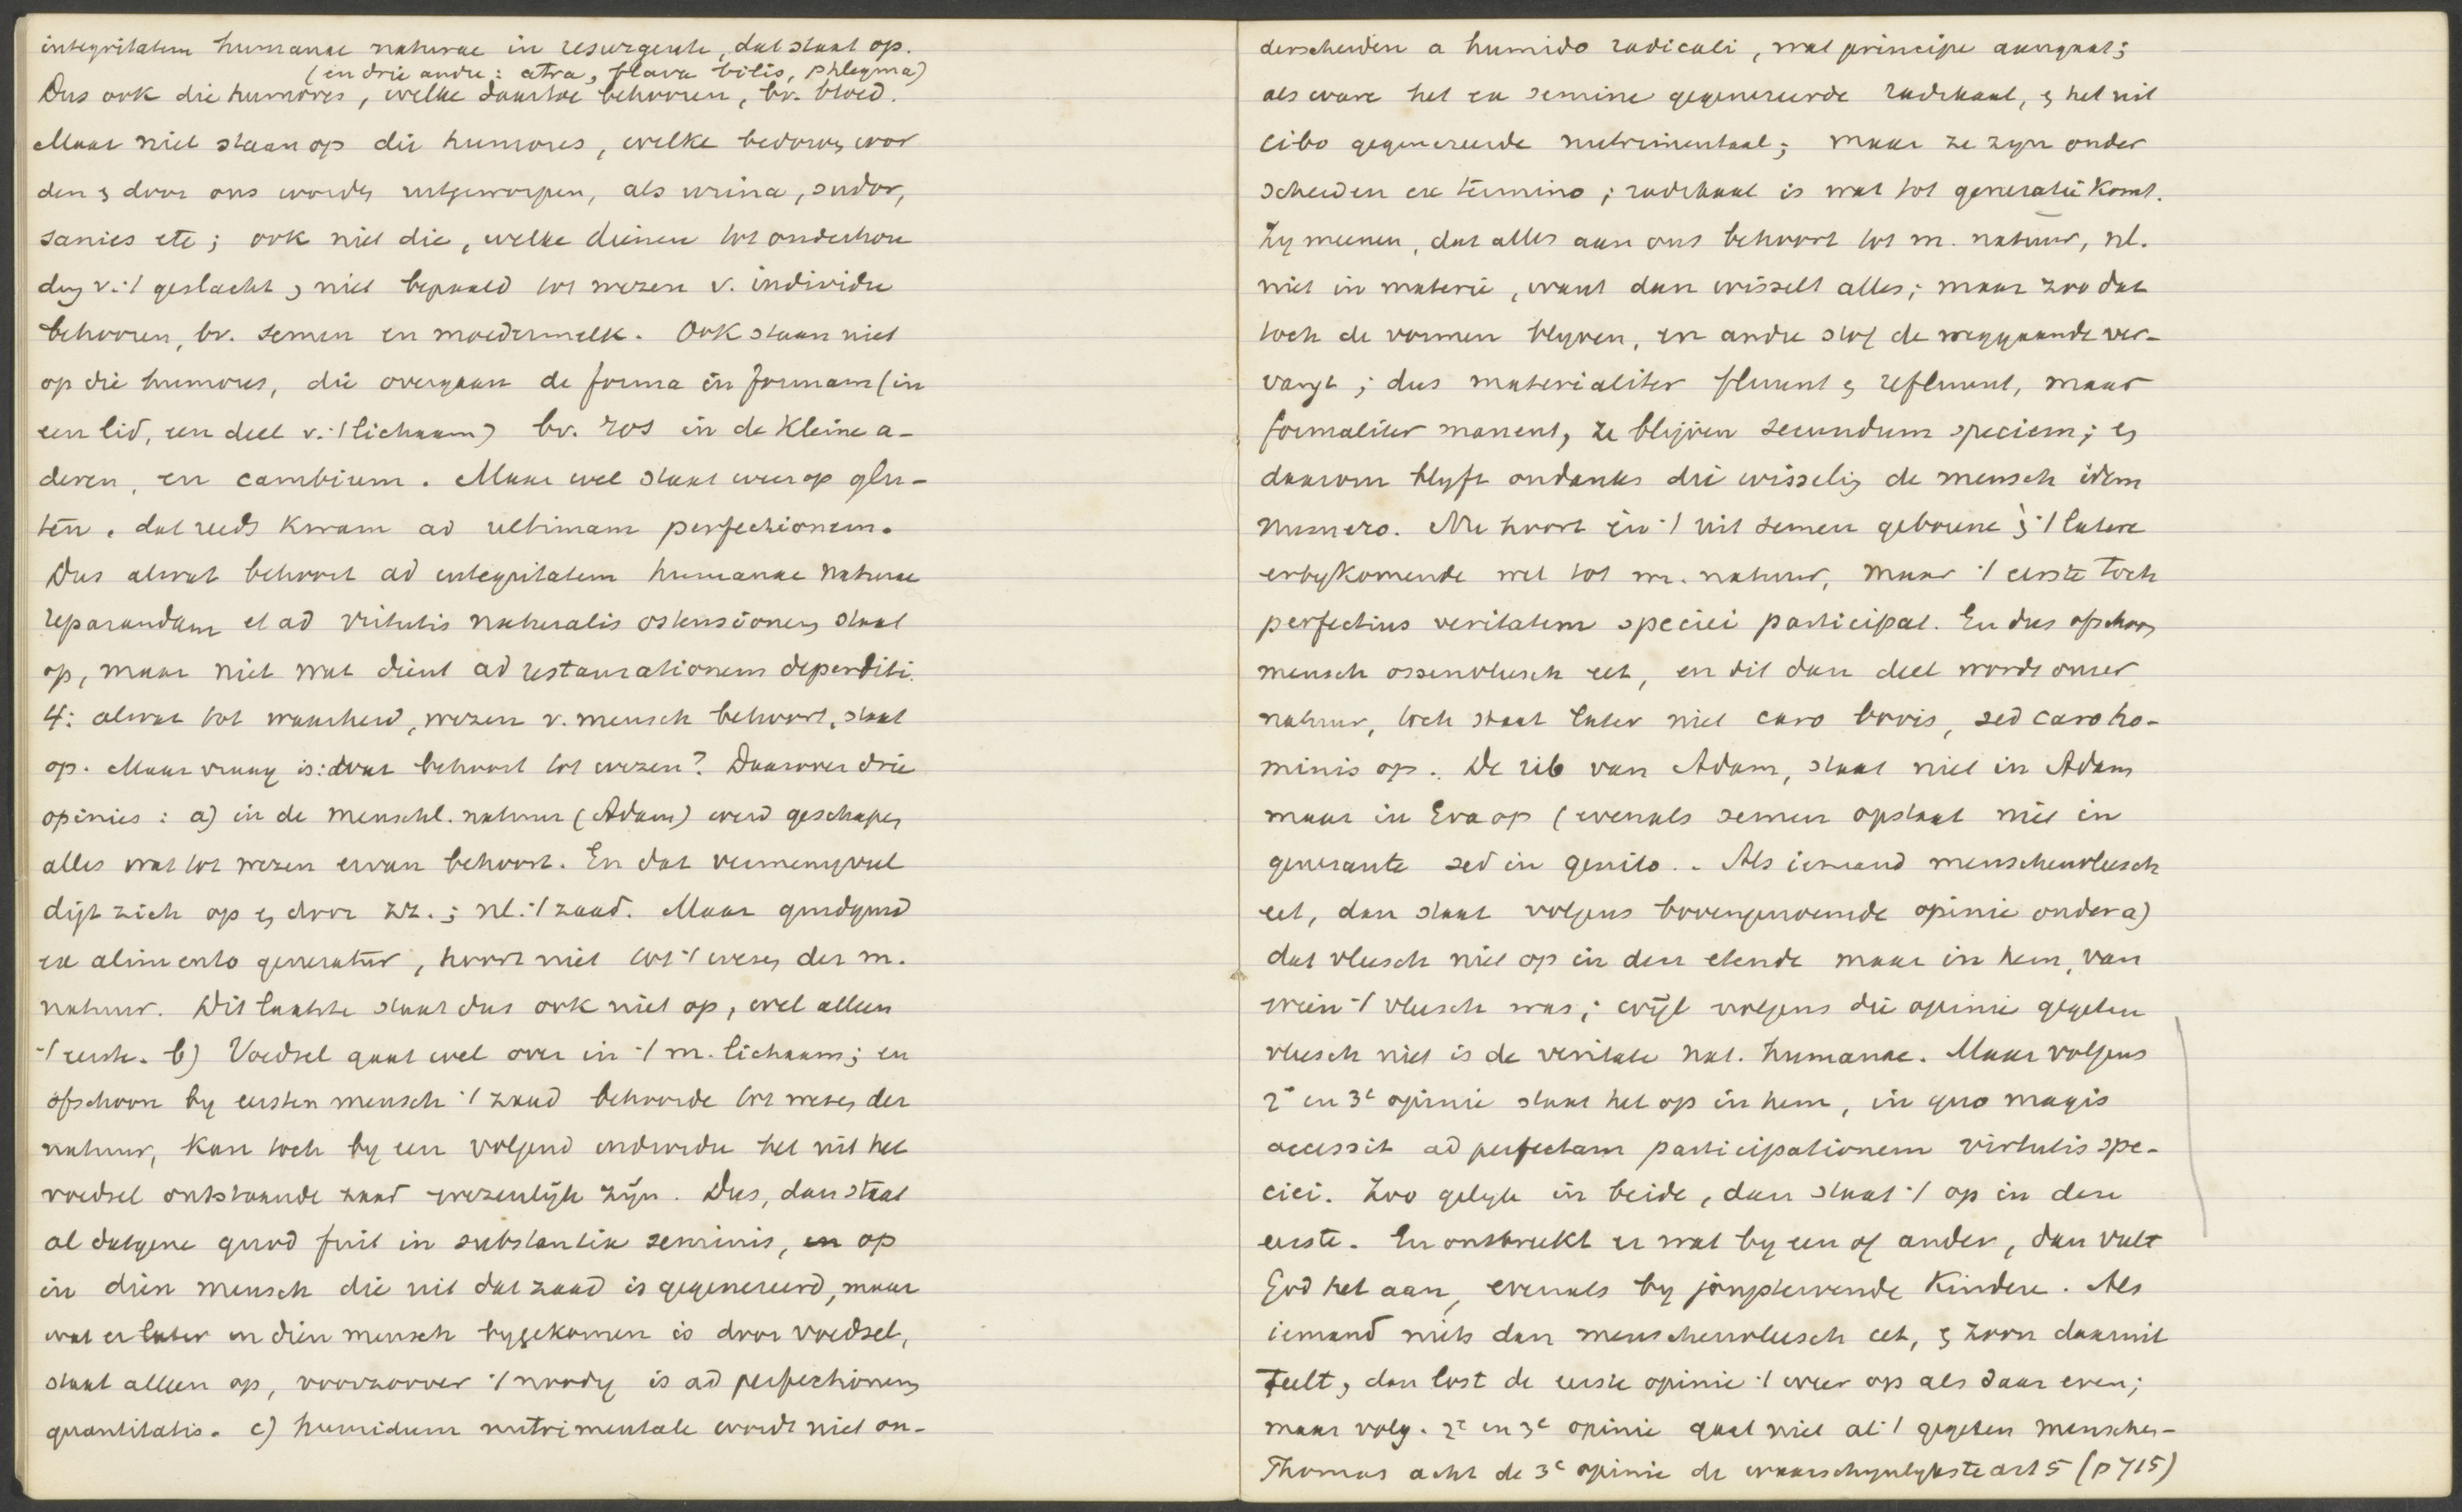 integritatem humanae naturae in resurgente, dat staat op.
(en drie andre: atra, flava bilis, phlegma)
Dus ook die humores, welke daartoe behooren, bv. bloed.
Maar niet staan op die humores, welke bedorven wor
den & door ons worden uitgeworpen, als urina, sudor,
sanies etc; ook niet die, welke dienen tot onderhou
ding v. 't geslacht & niet bepaald tot wezen v. individu
behooren, bv. semen en moedermelk. Ook staan niet
op die humores, die overgaan de forma in formam (in
een lid, een deel v. 't lichaam) bv. ros in de kleine a-
deren, en cambium. Maar wel staat weer op glu-
ten, dat reeds kwam ad ultimam perfectionem.
Dus alwat behoort ad integritatem humanae naturae
reparandam et ad virtutis naturalis ostensionem staat
op, maar niet wat dient ad restaurationem deperditi.
4: alwat tot waarheid, wezen v. mensch behoort, staat
op. Maar vraag is: wat behoort tot wezen? Daarover drie
opinies: a) in de menschl. natuur (Adam) werd geschapen
alles wat tot wezen ervan behoort. En dat vermenigvul
digt zich op & door zz.; nl. 't zaad. Maar quidquid
ex alimento generatur, hoort niet tot 't wezen der m.
natuur. Dit laatste staat dus ook niet op, wel alleen
't eerste. b) Voedsel gaat wel over in 't m. lichaam; en
ofschoon by eersten mensch 't zaad behoorde tot wezen der
natuur, kan toch by een volgend individu het uit het
voedsel ontstaande zaad wezenlijk zijn. Dus, dan staat
al datgene quod fuit in substantia seminis, op
in dien mensch die uit dat zaad is gegenereerd, maar
wat er later in dien mensch bygekomen is door voedsel,
staat alleen op, voorzoover 't noodig is ad perfectionem
quantitatis. c) humidum nutrimentale wordt niet on-
derscheiden a humido radicali, wat principe aangaat;
als ware het ex semine gegenereerde radikaal, & het uit
cibo gegenereerde nutrimentaal; maar ze zyn onder
scheiden ex termino; radikaal is wat tot generatie komt.
Zy meenen, dat alles aan ons behoort tot m. natuur, nl.
niet in materie, want dan wisselt alles; maar zoo dat
toch de vormen blyven, en andre stof de weggaande ver-
vangt; dus materialiter fluunt & refluunt, maar
formaliter manent, ze blijven secundum speciem; &
daarom blyft ondanks die wisseling de mensch idem
numero. Nu hoort én 't uit semen geborene én 't latere
erbijkomende wel tot m. natuur, maar 't eerste toch
perfectius veritatem speciei participat. En dus ofschoon
mensch ossenvleesch eet, en dit dan deel wordt onzer
natuur, toch staat later niet caro bovis, sed caro ho-
minis op. De rib van Adam, staat niet in Adam
maar in Eva op (evenals semen opstaat niet in
generante sed in genito.. Als iemand menschenvleesch
eet, dan staat volgens bovengenoemde opinie onder a)
dat vleesch niet op in den etende maar in hem, van
wien 't vleesch was; wijl volgens die opinie gegeten
vleesch niet is de veritate nat. humanae. Maar volgens
2e en 3e opinie staat het op in hem, in quo magis
accessit ad perfectam participationem virtutis spe-
ciei. Zoo gelyk in beide, dan staat 't op in den
eerste. En ontbreekt er wat by een of ander, dan vult
God het aan, evenals by jongstervende kindere. Als
iemand niets dan menschenvleesch eet, & zoon daaruit
teelt, dan lost de eerste opinie 't weer op als daar even;
maar volg. 2e en 3e opinie gaat niet al 't gegeten menschen-
Thomas acht de 3e opinie de waarschynlykste art 5 (p 715)